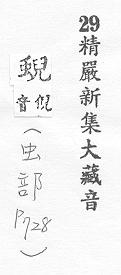 29精嚴新集大藏音
音倪
(虫部 P728)